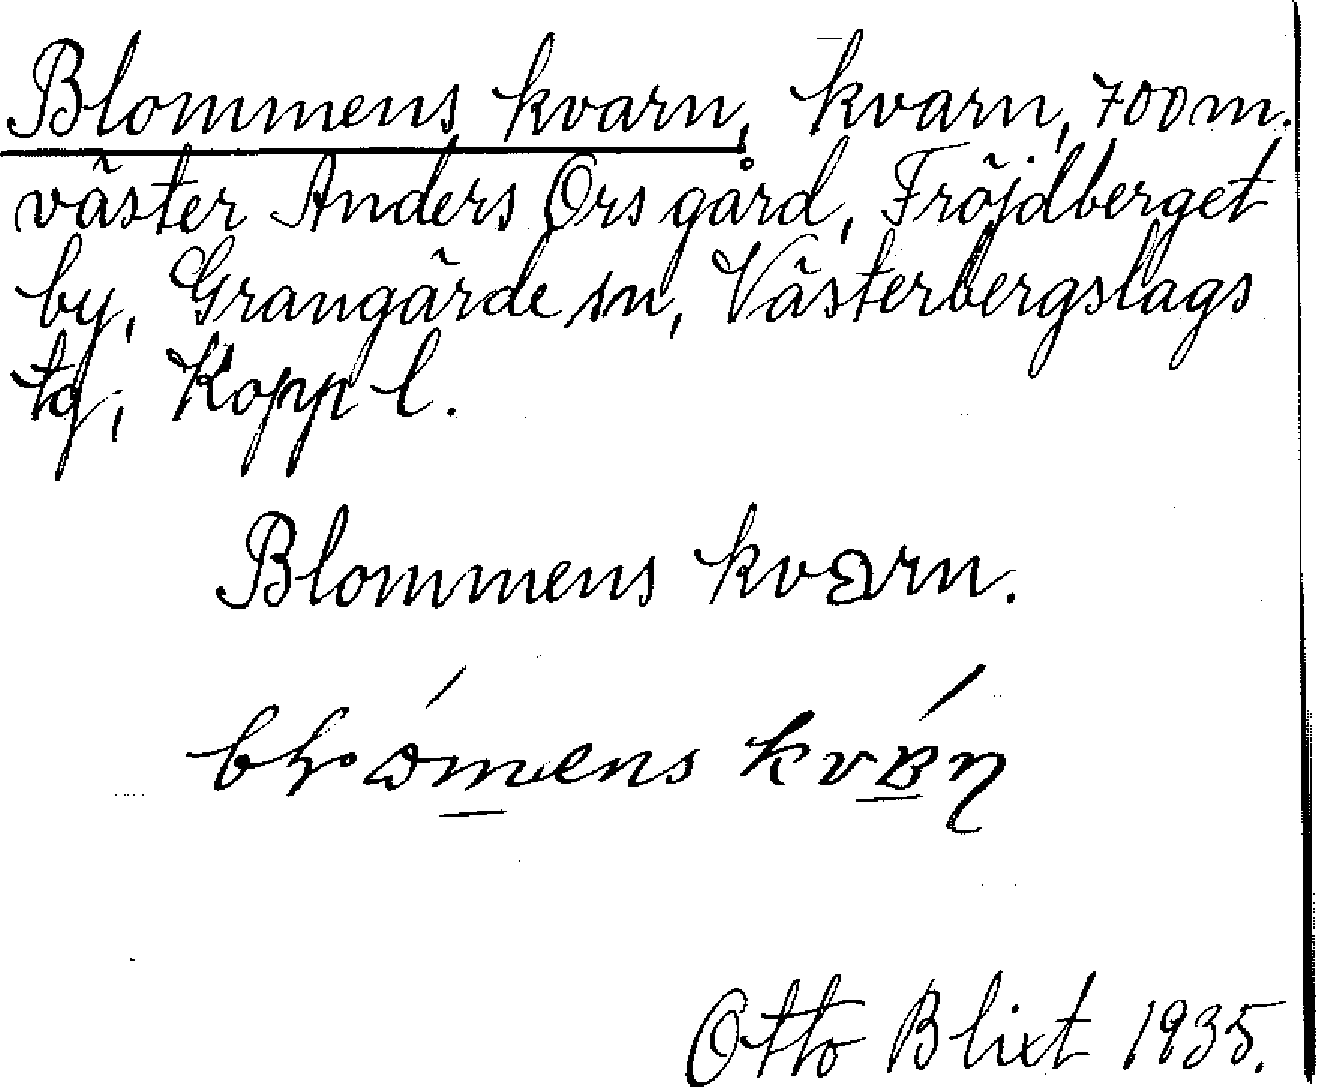 Blommens kvarn, kvarn, 700 m.
väster Anders Ors gård, Fröjdberget
by, Grangärde sn, Västerbergslags
tg, Kopp l.
Blommens kvarn.
Otto Blixt 1935.